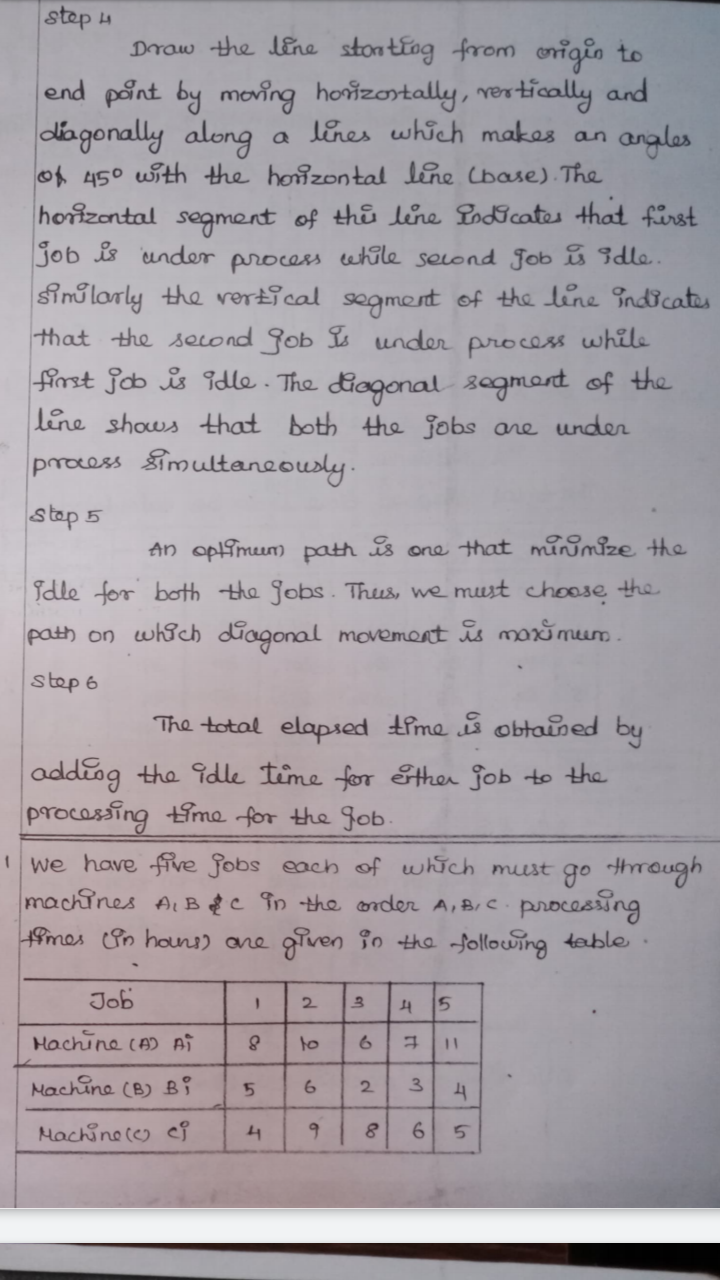 Step 4
Draw the line starting from origin to
end point by moving horizontally, vertically and
diagonally along a lines which makes an angles
of 45° with the horizontal line (base). The
horizontal segment of this line indicates that first
job is under process while second job is idle.
similarly the vertical segment of the line indicates
that the second job is under process while
first job is idle. The diagonal segment of the
line shows that both the jobs are under
process simultaneously.
Step 5
An optimum path is one that minimize the
idle for both the jobs. Thus, we must choose the
path on which diagonal movement is maximum.
Step 6
The total elapsed time is obtained by
adding the idle time for either job to the
processing time for the job.
1 We have five jobs each of which must go through
machines A, B & C in the order A, B, C. processing
times (in hours) are given in the following table.
Job 1 2 3 4 5
Machine (A) Ai 8 10 6 7 11
Machine (B) Bi 5 6 2 3 4
Machine (C) Ci 4 9 8 6 5